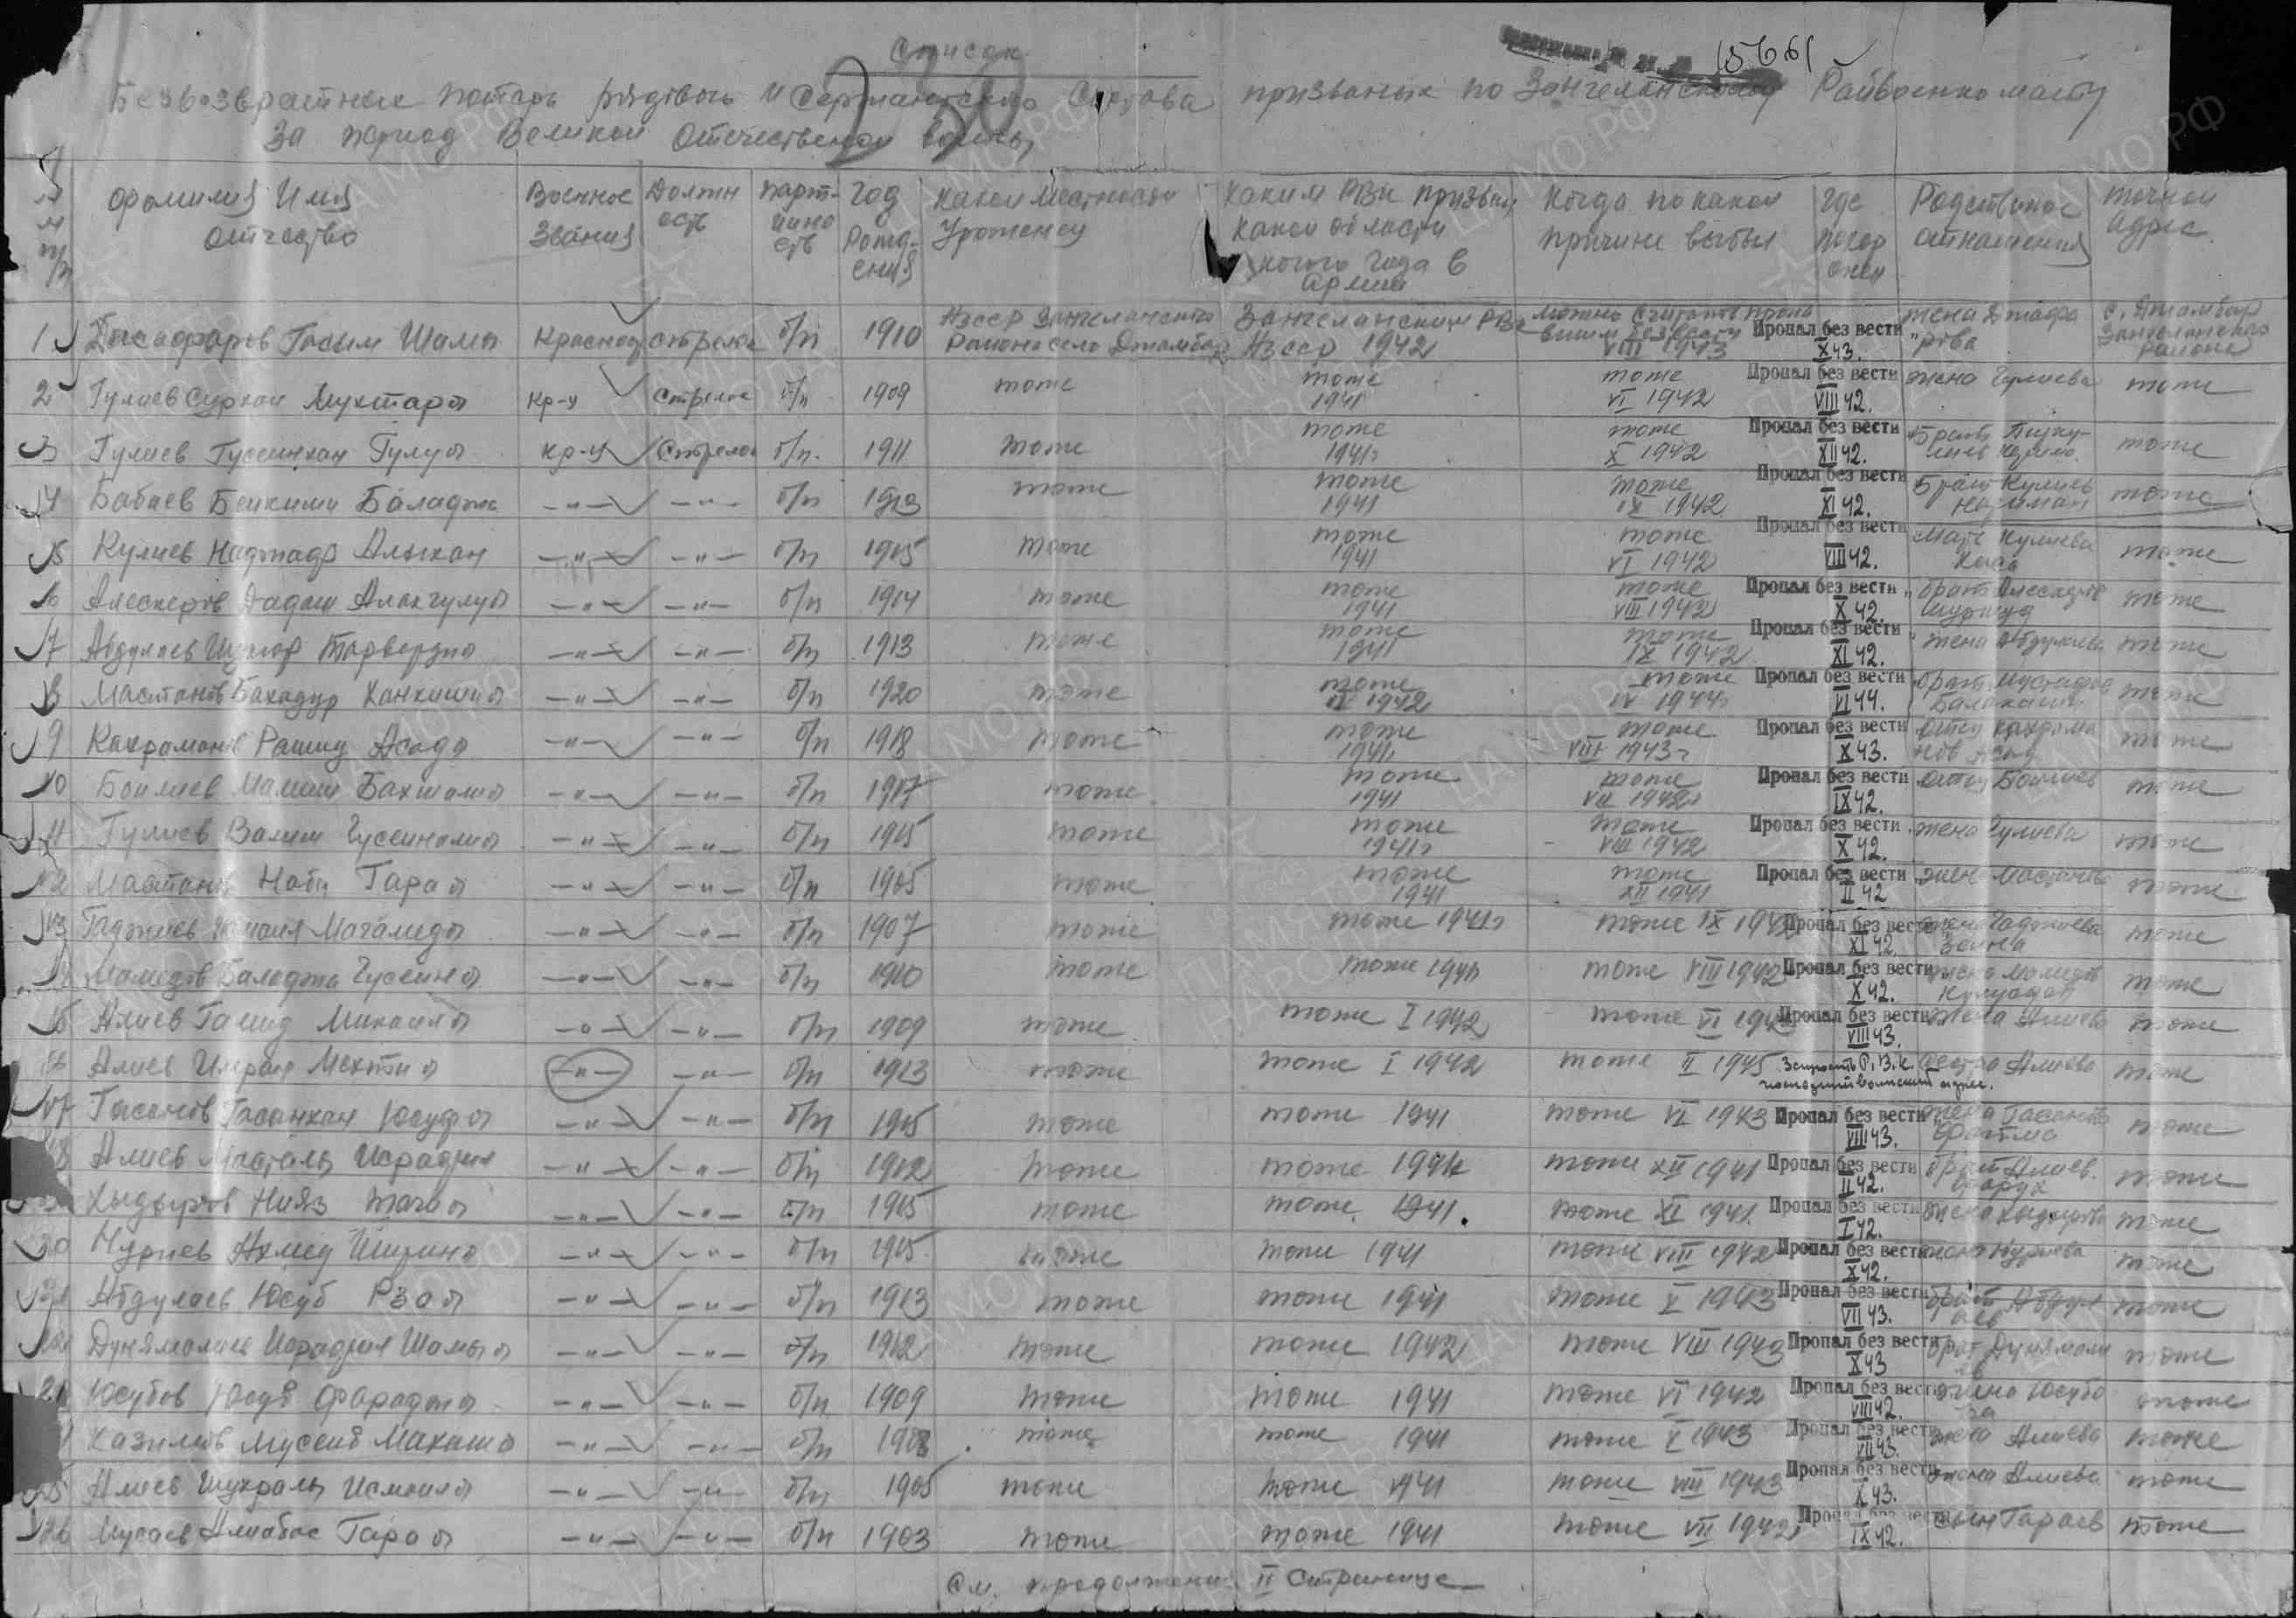 Список
15661
Безвозвратных потерь рядового и Сержантского Состава призваных по Зангеланскому Райвоенкомату
За период Великой Отечественной войны
№ № п/п | Фамилия Имя Отчество | Военное Звания | Должность | парт-ийность | Год Рождения | какой местности Уроженец | Каким РВК призван какой области какого года в Армии | Когда по какой причине выбыл | Где похоронен | Родственное отношения | точный адрес
1 Джафаров Гасым Шамы Красноар стрелок б/п 1910 АзССР Зангеланского Района село Джамбар Зангеланским РВК АзССР 1942 можно считать пропавшим без вести VIII 1943 Пропал без вести X 43. жена Джафарова с. Джамбар Зангеланского района
2 Гулиев Сурхай Мухтар о Кр-ц Стрелок б/п 1909 тоже тоже 1941 тоже VI 1942 Пропал без вести VIII 42. жена Гулиева тоже
3 Гулиев Гусеинхан Гулу о кр-ц Стрелок б/п 1911 тоже тоже 1941г тоже X 1942 Пропал без вести XII 42. Брат тоже
4 Бабаев Баладжа —"— —"— б/п 1913 тоже тоже 1941 тоже IX 1942 Пропал без вести XI 42. Брат Кулиев Нариман тоже
5 Кулиев Наджаф Алыхан —"— —"— б/п 1905 тоже тоже 1941 тоже VI 1942 Пропал без вести VIII 42. Мать Кулиева тоже
6 Алескеров Дадаш Алахгулу о —"— —"— б/п 1914 тоже тоже 1941 тоже VIII 1942 Пропал без вести X 42. брат Алескеров тоже
7 Абдулаев Шукюр Тарверди о —"— —"— б/п 1913 тоже тоже 1941 тоже IX 1942 Пропал без вести XI 42. жена Абдулаева тоже
8 Мастанов Бахадур Ханкиши о —"— —"— б/п 1920 тоже тоже 1942 тоже IV 1944г Пропал без вести VI 44. брат тоже
9 Кахраманов Рашид Асад о —"— —"— б/п 1918 тоже тоже 1941г тоже VIII 1943г Пропал без вести X 43. отец Кахраманов Асад тоже
10 Маміш Бахшали о —"— —"— б/п 1917 тоже тоже 1941 тоже VII 1942г Пропал без вести IX 42. отец тоже
11 Гулиев Валиш Гусеинали о —"— —"— б/п 1915 тоже тоже 1941г тоже VIII 1942 Пропал без вести X 42. жена Гулиева тоже
12 Мастанов Наби Гара о —"— —"— б/п 1905 тоже тоже 1941 тоже XII 1941 Пропал без вести II 42 жена Мастанова тоже
13 Гаджиев Исмаил Магамед о —"— —"— б/п 1907 тоже тоже 1941г тоже IX 1942 Пропал без вести XI 42. жена Гаджиева тоже
14 Мамедов Баладжа Гусеин о —"— —"— б/п 1910 тоже тоже 1941 тоже VIII 1942 Пропал без вести X 42. жена Мамедов тоже
15 Алиев Гамид Микаил о —"— —"— б/п 1909 тоже тоже I 1942 тоже VI 1943 Пропал без вести VIII 43. жена Алиева тоже
16 Алиев Имран Мехти о —"— —"— б/п 1913 тоже тоже I 1942 тоже II 1945 Запросить Р.В.К. последний воинский адрес. сестра Алиева тоже
17 Гасанов Гасанхан Юсуф о —"— —"— б/п 1915 тоже тоже 1941 тоже VI 1943 Пропал без вести VIII 43. жена Гасанова Фатма тоже
18 Алиев Исрафил —"— —"— б/п 1912 тоже тоже 1941 тоже XII 1941 Пропал без вести II 42. брат Алиев Фарух тоже
Хыдыров Нияз Таги о —"— —"— б/п 1915 тоже тоже 1941. тоже XI 1941 Пропал без вести I 42. жена Хыдырова тоже
20 Нуриев Ахмед Ширин о —"— —"— б/п 1915 тоже тоже 1941 тоже VIII 1942 Пропал без вести X 42. жена Нуриева тоже
21 Абдулаев Юсуб Рза о —"— —"— б/п 1913 тоже тоже 1941 тоже V 1943 Пропал без вести VII 43. брат Абдулаев тоже
22 Дунямалиев Исрафил Шамы о —"— —"— б/п 1912 тоже тоже 1942 тоже VIII 1943 Пропал без вести X 43 брат Дунямали тоже
Юсубов Юсуб Фараджи —"— —"— б/п 1909 тоже тоже 1941 тоже VI 1942 Пропал без вести VIII 42. жена Юсубова тоже
Казимов Мусеиб —"— —"— б/п 1908 тоже тоже 1941 тоже V 1943 Пропал без вести VII 43. жена Алиева тоже
25 Алиев Шукраль Исмаил о —"— —"— б/п 1905 тоже тоже 1941 тоже VIII 1943 Пропал без вести X 43. жена Алиева тоже
26 Мусаев Алиабас Гара о —"— —"— б/п 1903 тоже тоже 1941 тоже VII 1942г Пропал без вести IX 42. сын Гараев тоже
См. продолжения II Странице